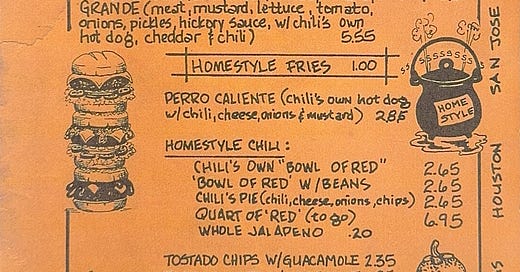 GRANDE (meat, mustard, lettuce, tomato,
onions, pickles, hickory sauce, w/chili's own
hot dog, cheddar & chili) 5.55
HOMESTYLE FRIES 1.00
PERRO CALIENTE (chili's own hot dog
w/chili, cheese, onions & mustard) 2.85
HOMESTYLE CHILI:
CHILI'S OWN "BOWL OF RED" 2.65
'BOWL OF RED' W/BEANS 2.65
CHILI'S PIE (chili, cheese, onions, chips) 2.65
QUART OF 'RED' (to go) 6.95
WHOLE JALAPENO .20
TOSTADO CHIPS W/GUACAMOLE 2.35
HOME
STYLE
SAN JOSE
HOUSTON